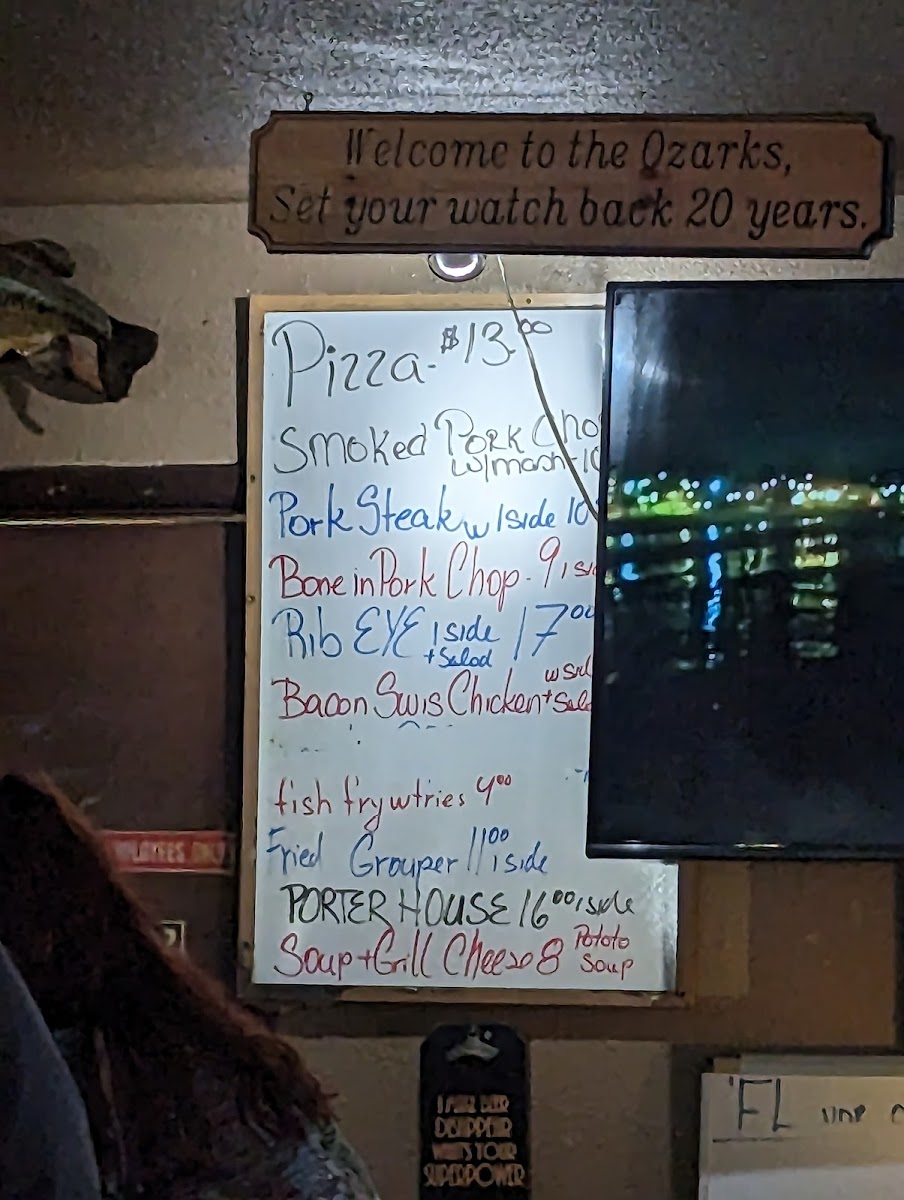 Welcome to the Ozarks,
Set your watch back 20 years.
Pizza. $13.00
Smoked Pork Cho
w/mash - 10
Pork Steak w/side 10
Bone in Pork Chop. 9 1 sid
Rib EYE 1 side 17 00
+ Salad
Bacon Swis Chicken + Sala
fish fry w fries 9 00
Fried Grouper 11 00 1 side
PORTER HOUSE 16 00 1 side
Soup + Grill Cheese 8 Potato
Soup
I MAKE BEER
DISAPPEAR
WHAT'S YOUR
SUPERPOWER
FL